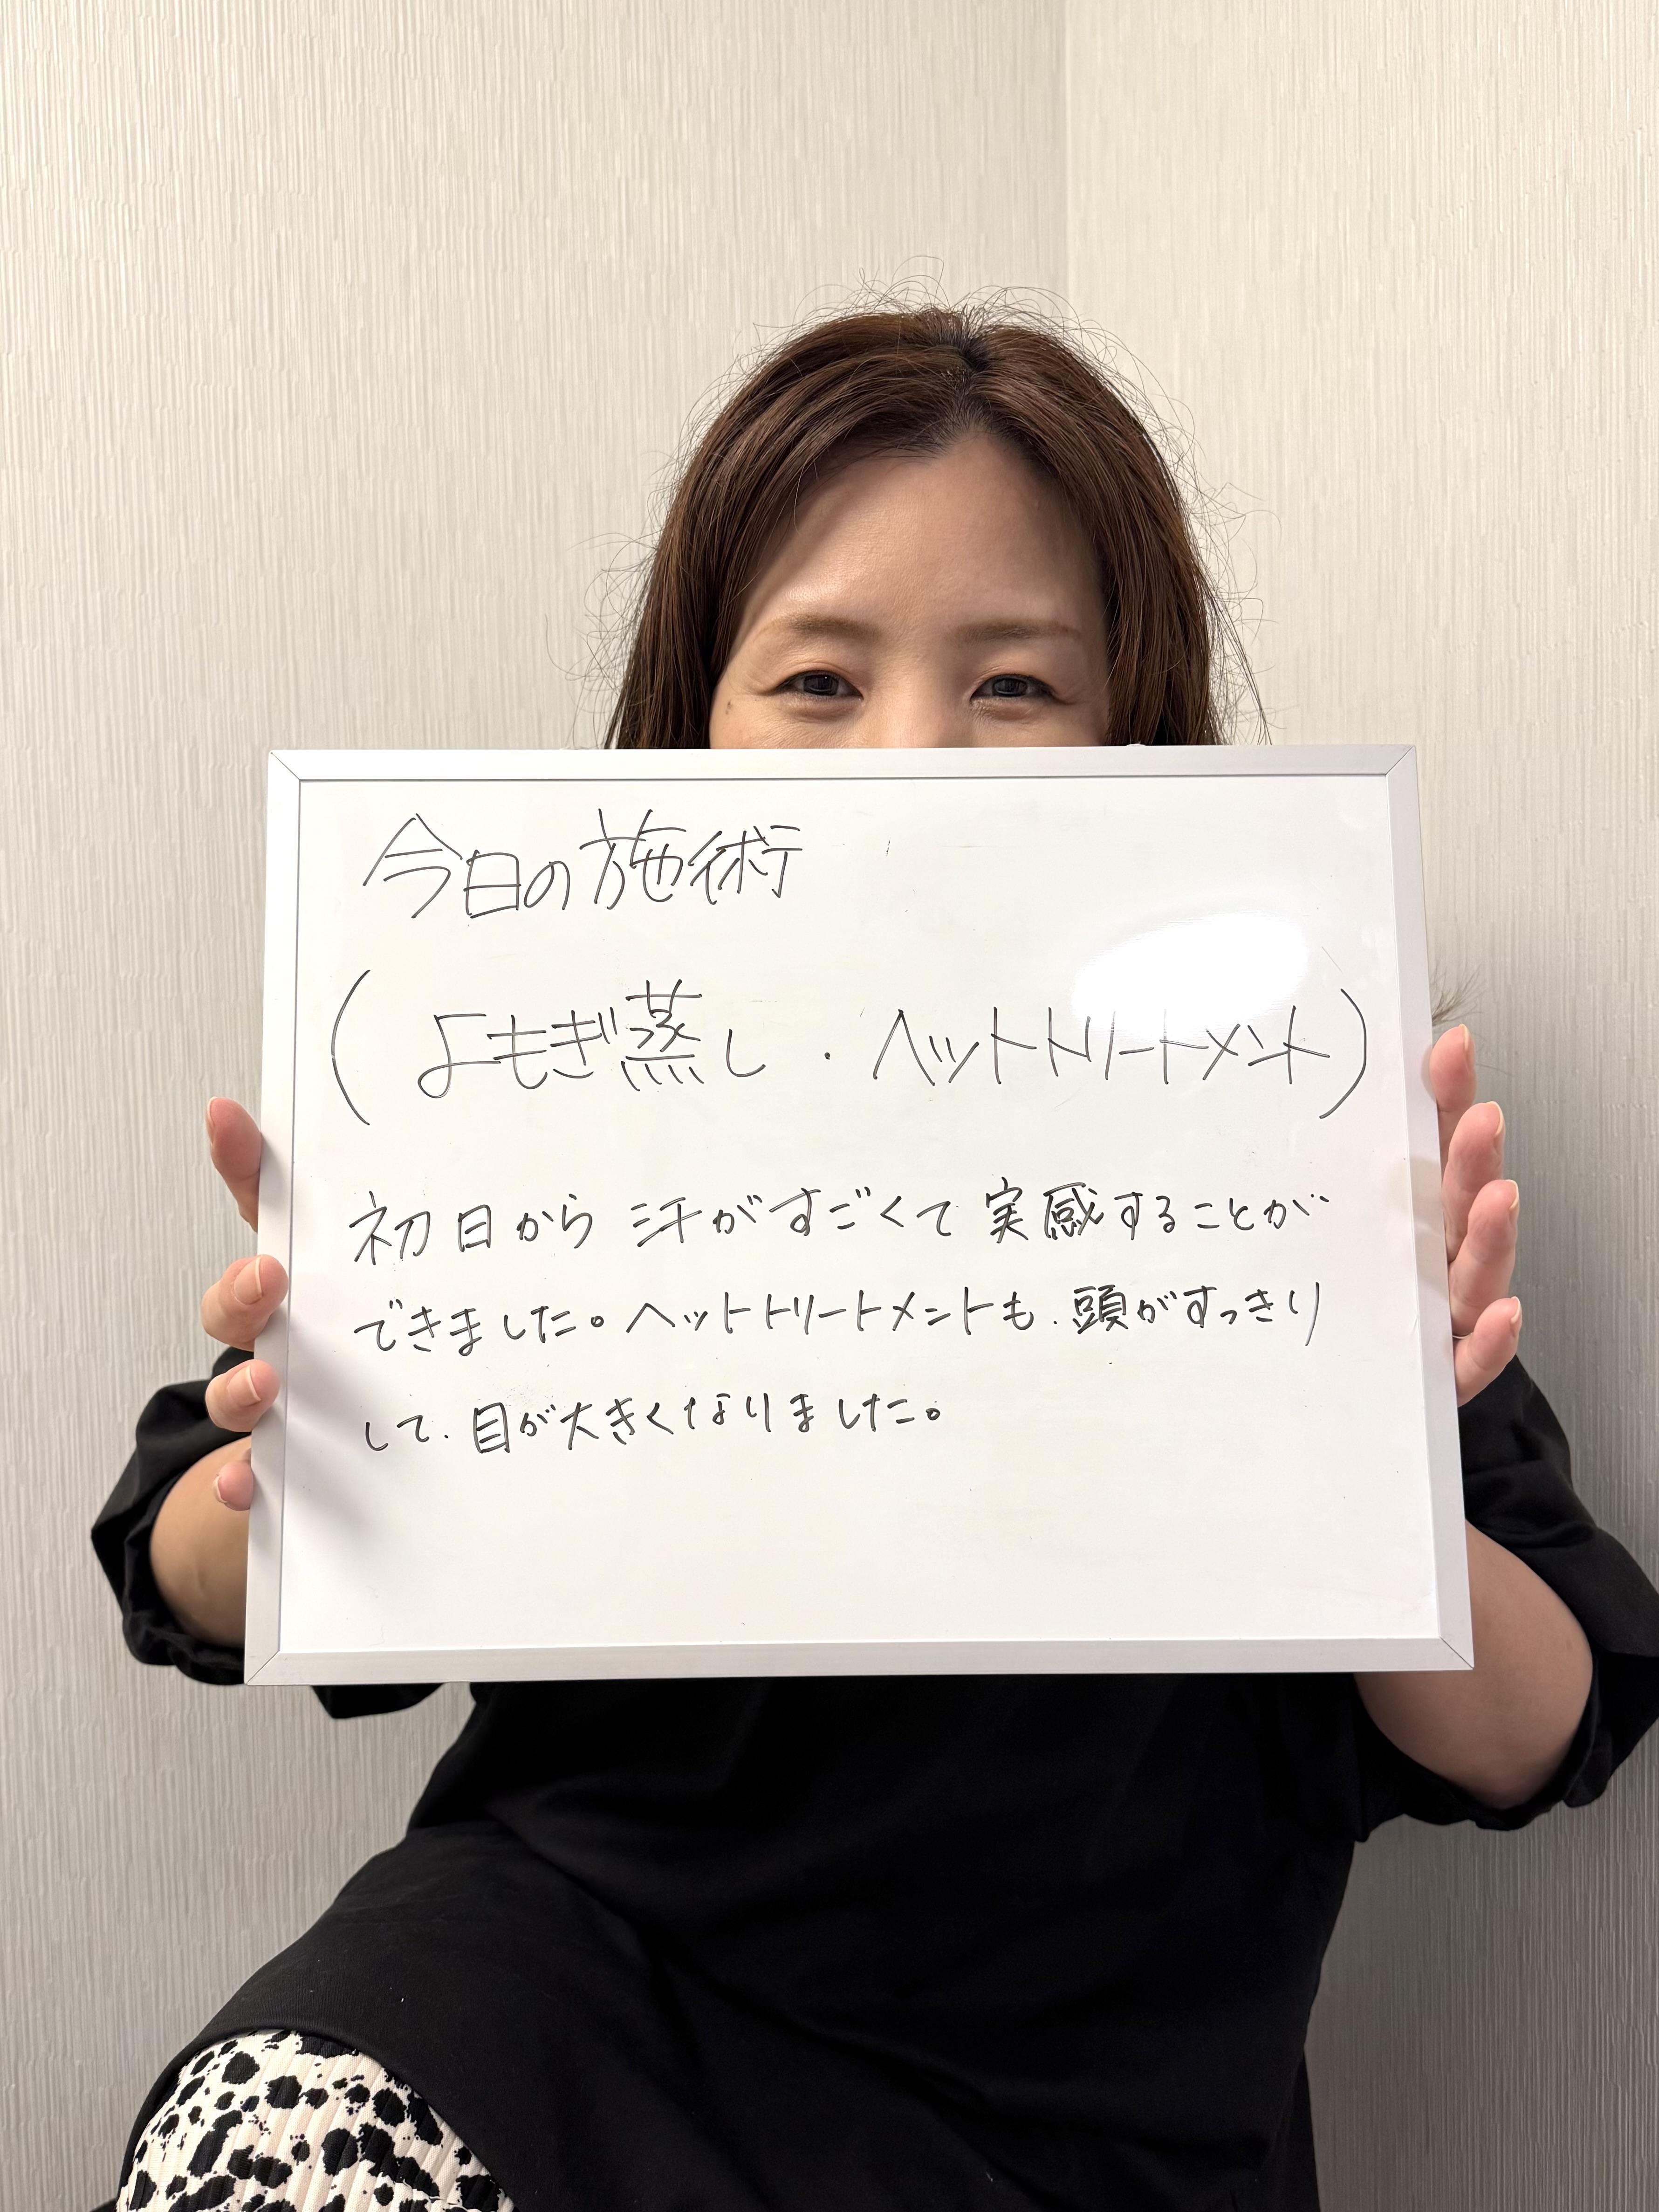 今日の施術
(よもぎ蒸し・ヘットトリートメント)
初日から汗がすごくて実感することが
できました。ヘットトリートメントも、頭がすっきり
して、目が大きくなりました。